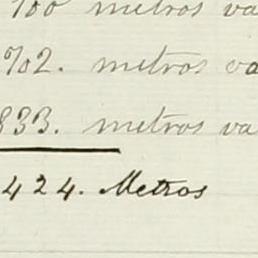 700 metros va
702. metros va
833. metros va
424. Metros